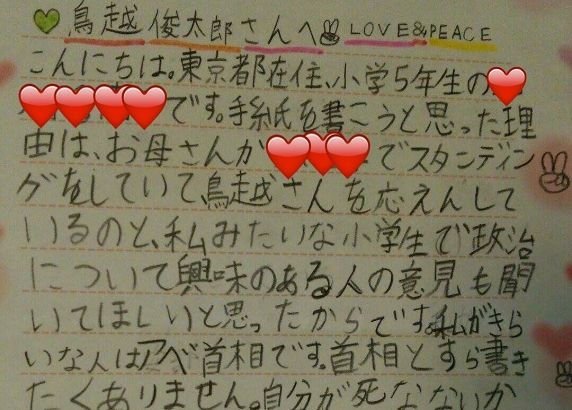 鳥越俊太郎さんへ LOVE&PEACE
こんにちは。東京都在住、小学5年生の
です。手紙を書こうと思った理
由は、お母さんが でスタンディン
グをしていて、鳥越さんを応えんして
いるのと、私みたいな小学生で政治
について興味のある人の意見も聞
いてほしいと思ったからです。私がきら
いな人はアベ首相です。首相とすら書き
たくありません。自分が死なないか